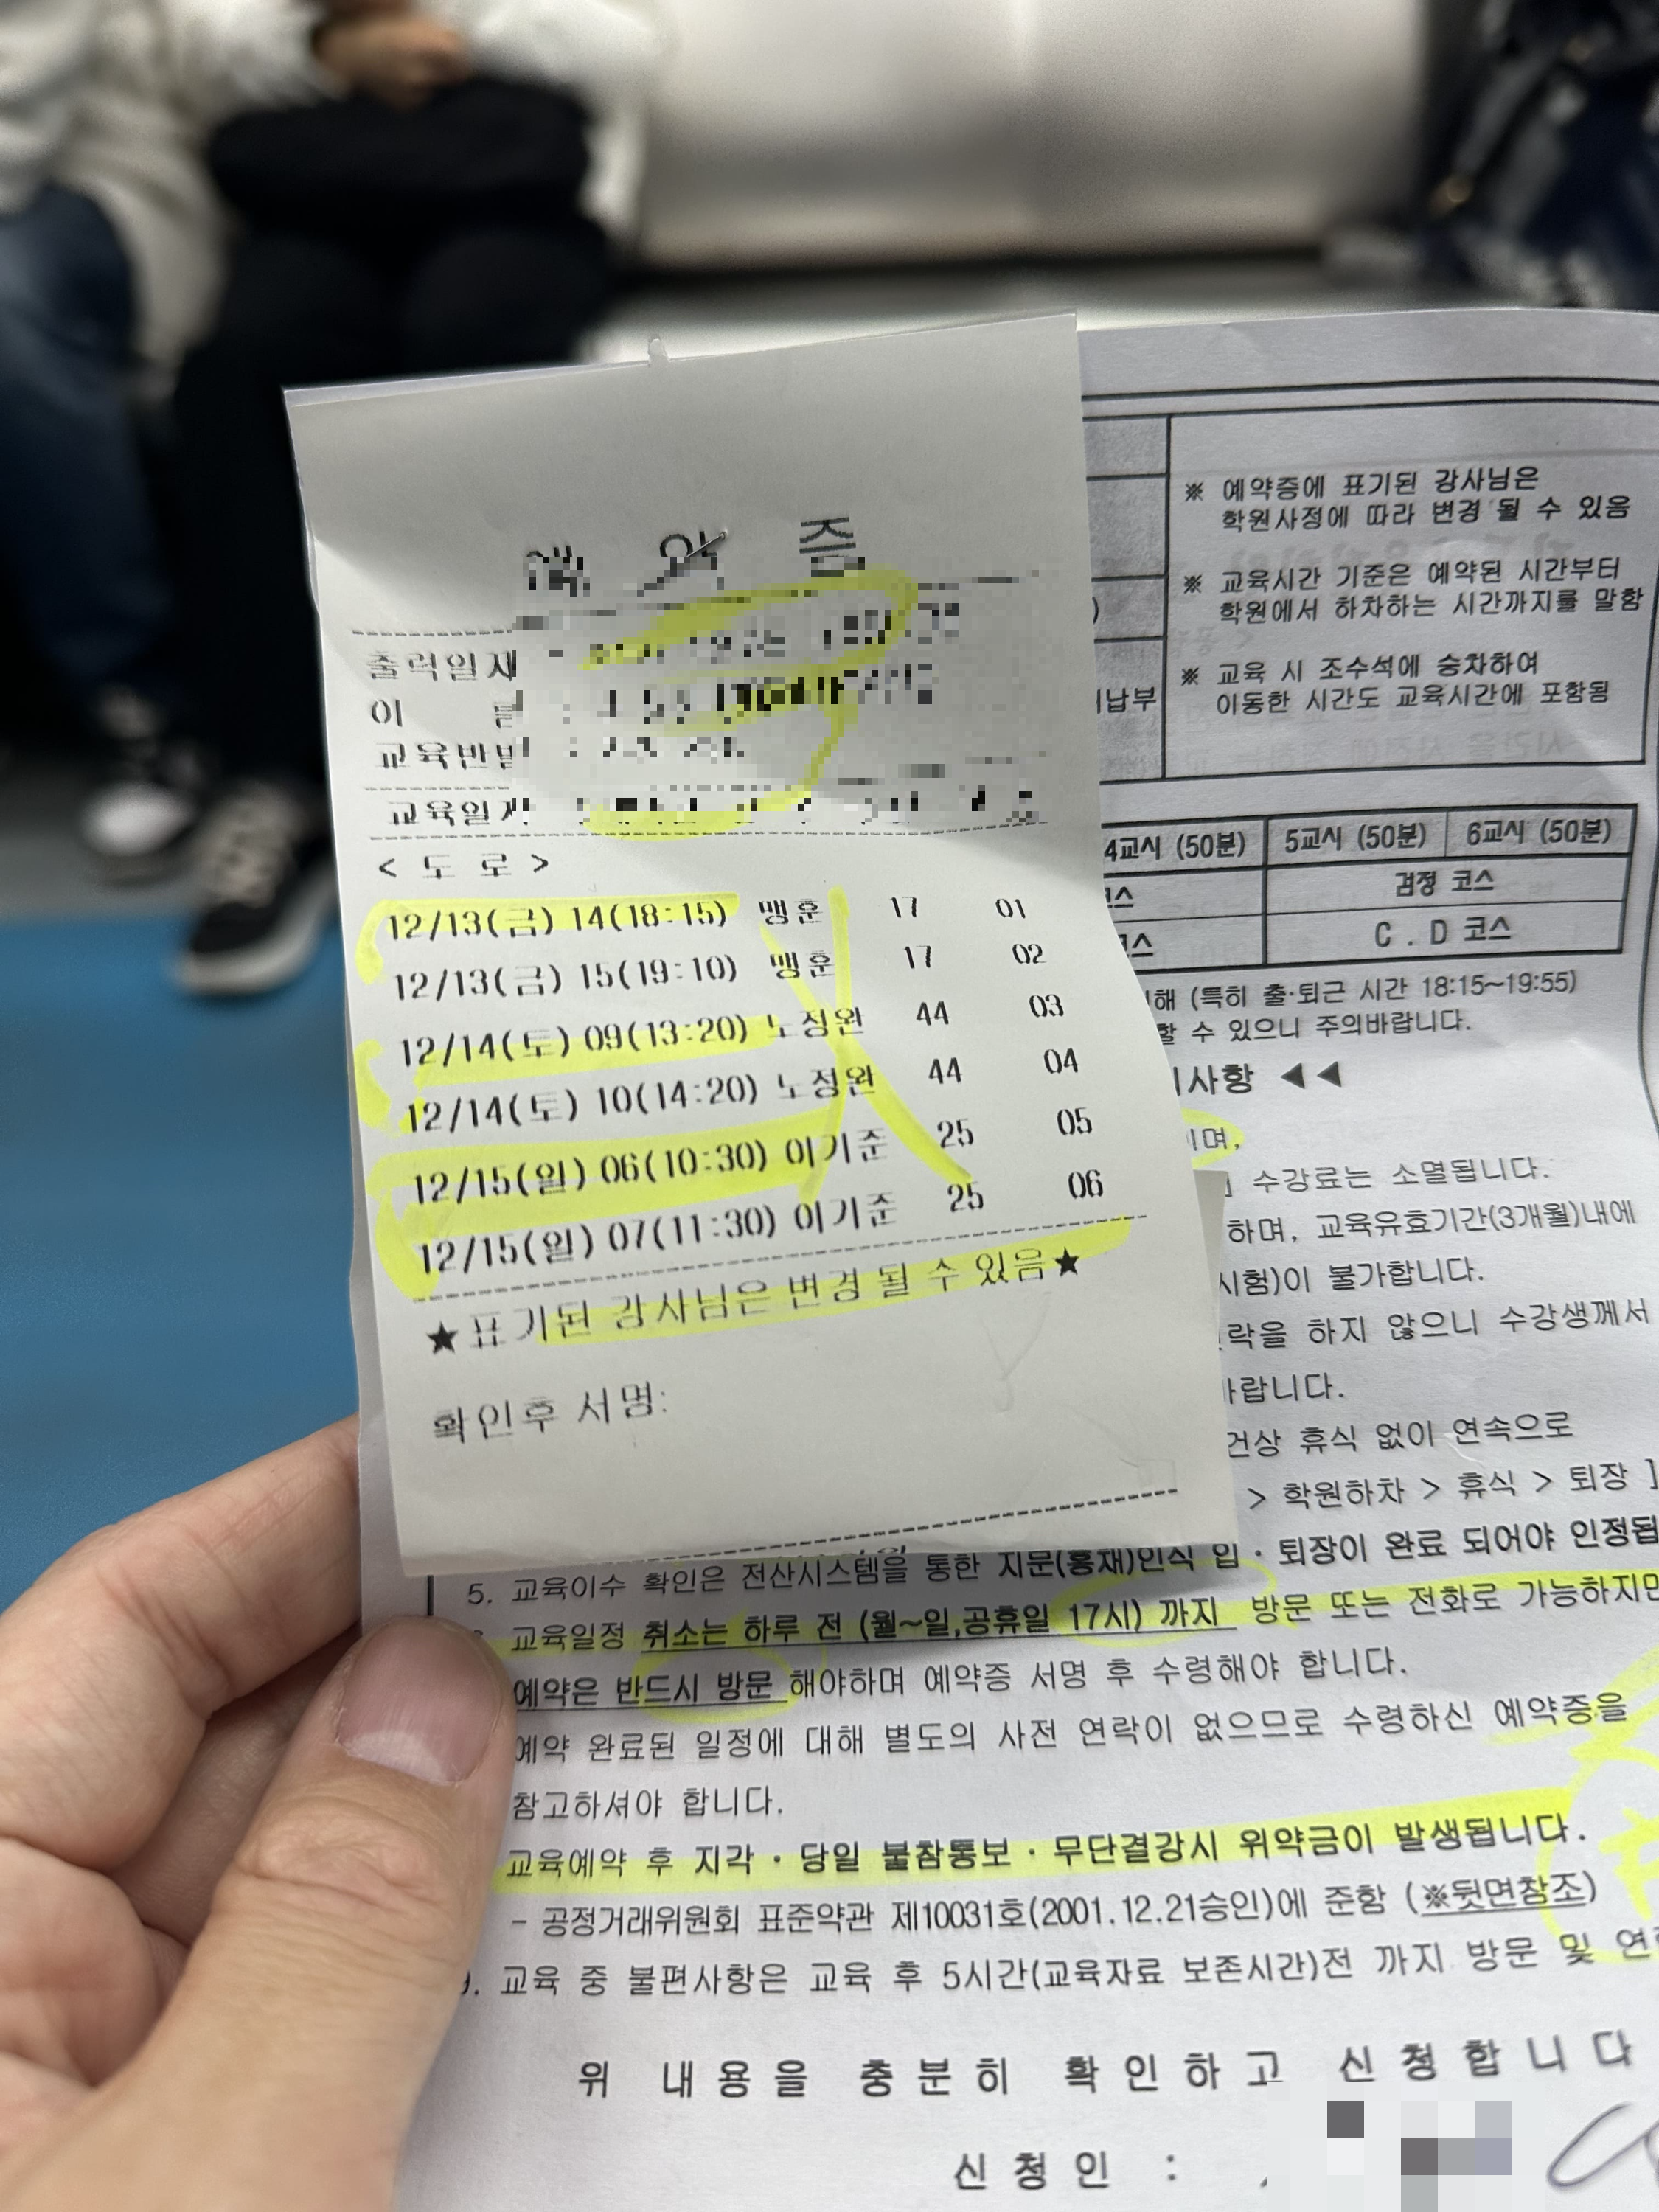 예 약 증
출력일재
이
교육반
교육일
< 도 로 >
12/13(금) 14(18:15) 맹훈 17 01
12/13(금) 15(19:10) 맹훈 17 02
12/14(토) 09(13:20) 노정완 44 03
12/14(토) 10(14:20) 노정완 44 04
12/15(일) 06(10:30) 이기준 25 05
12/15(일) 07(11:30) 이기준 25 06
★표기된 강사님은 변경 될 수 있음★
확인후 서명:
※ 예약증에 표기된 강사님은
학원사정에 따라 변경 될 수 있음
※ 교육시간 기준은 예약된 시간부터
학원에서 하차하는 시간까지를 말함
※ 교육 시 조수석에 승차하여
이동한 시간도 교육시간에 포함됨
납부
4교시 (50분) 5교시 (50분) 6교시 (50분)
검정 코스
C . D 코스
해 (특히 출·퇴근 시간 18:15~19:55)
할 수 있으니 주의바랍니다.
사항 ◀◀
이며,
수강료는 소멸됩니다.
하며, 교육유효기간(3개월)내에
시험)이 불가합니다.
락을 하지 않으니 수강생께서
바랍니다.
건상 휴식 없이 연속으로
> 학원하차 > 휴식 > 퇴장 ]
5. 교육이수 확인은 전산시스템을 통한 지문(홍채)인식 입·퇴장이 완료 되어야 인정됩
교육일정 취소는 하루 전 (월~일,공휴일 17시) 까지 방문 또는 전화로 가능하지만
예약은 반드시 방문 해야하며 예약증 서명 후 수령해야 합니다.
예약 완료된 일정에 대해 별도의 사전 연락이 없으므로 수령하신 예약증을
참고하셔야 합니다.
교육예약 후 지각·당일 불참통보·무단결강시 위약금이 발생됩니다.
- 공정거래위원회 표준약관 제10031호(2001.12.21승인)에 준함 (※뒷면참조)
9. 교육 중 불편사항은 교육 후 5시간(교육자료 보존시간)전 까지 방문 및 연
위 내용을 충분히 확인하고 신청합니다
신청인 :